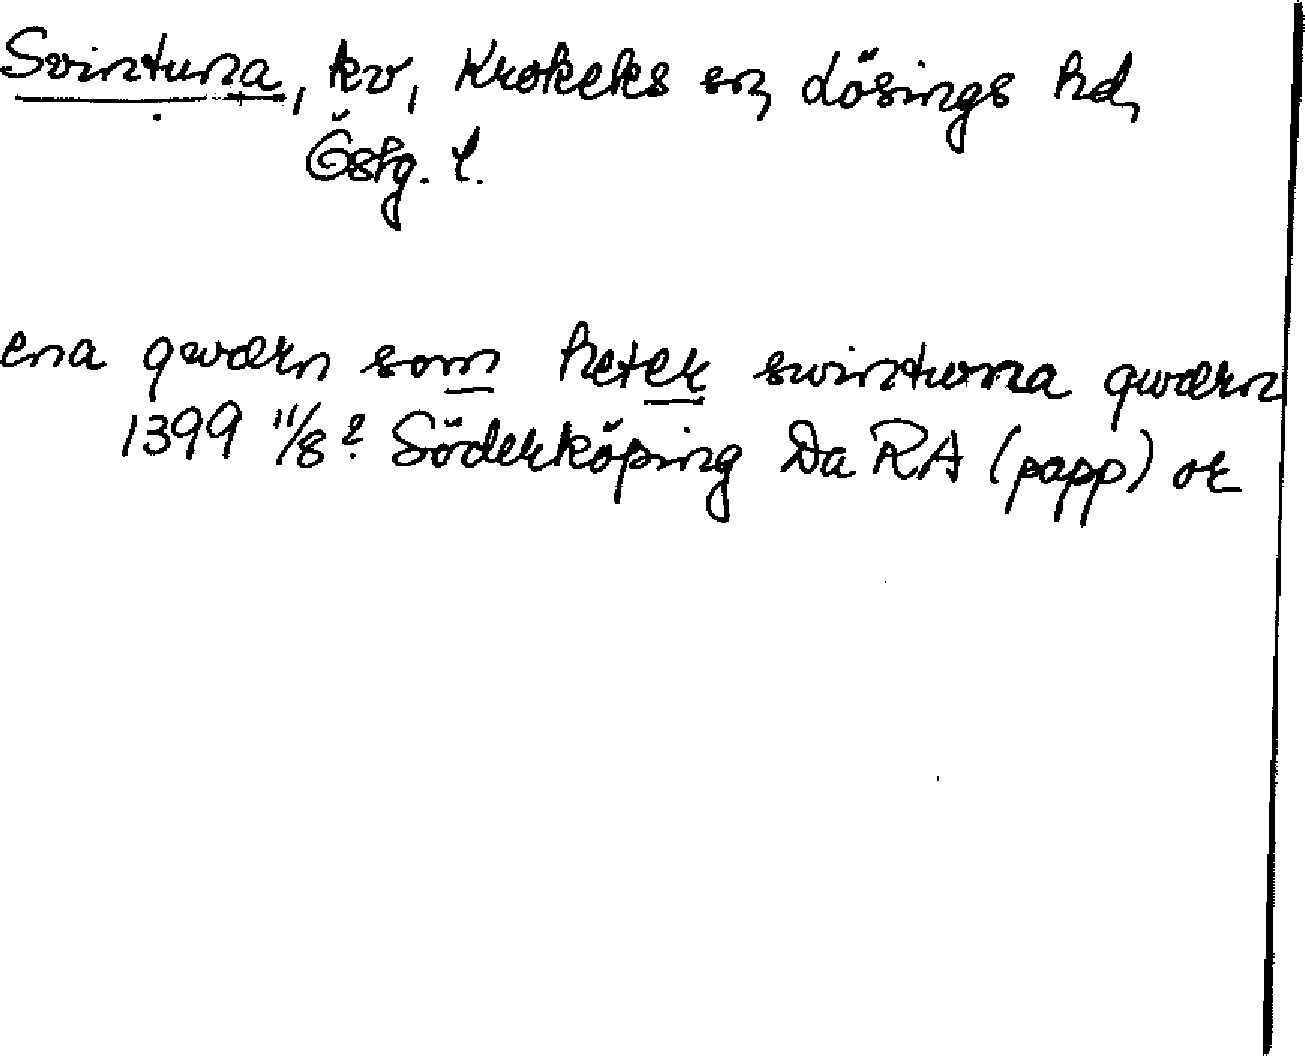 Svintuna, kv, Krokeks sn, Lösings hd,
Östg. l.
ena qwærn som heter swintuna qwærn
1399 11/8? Söderköping Da RA (papp) or